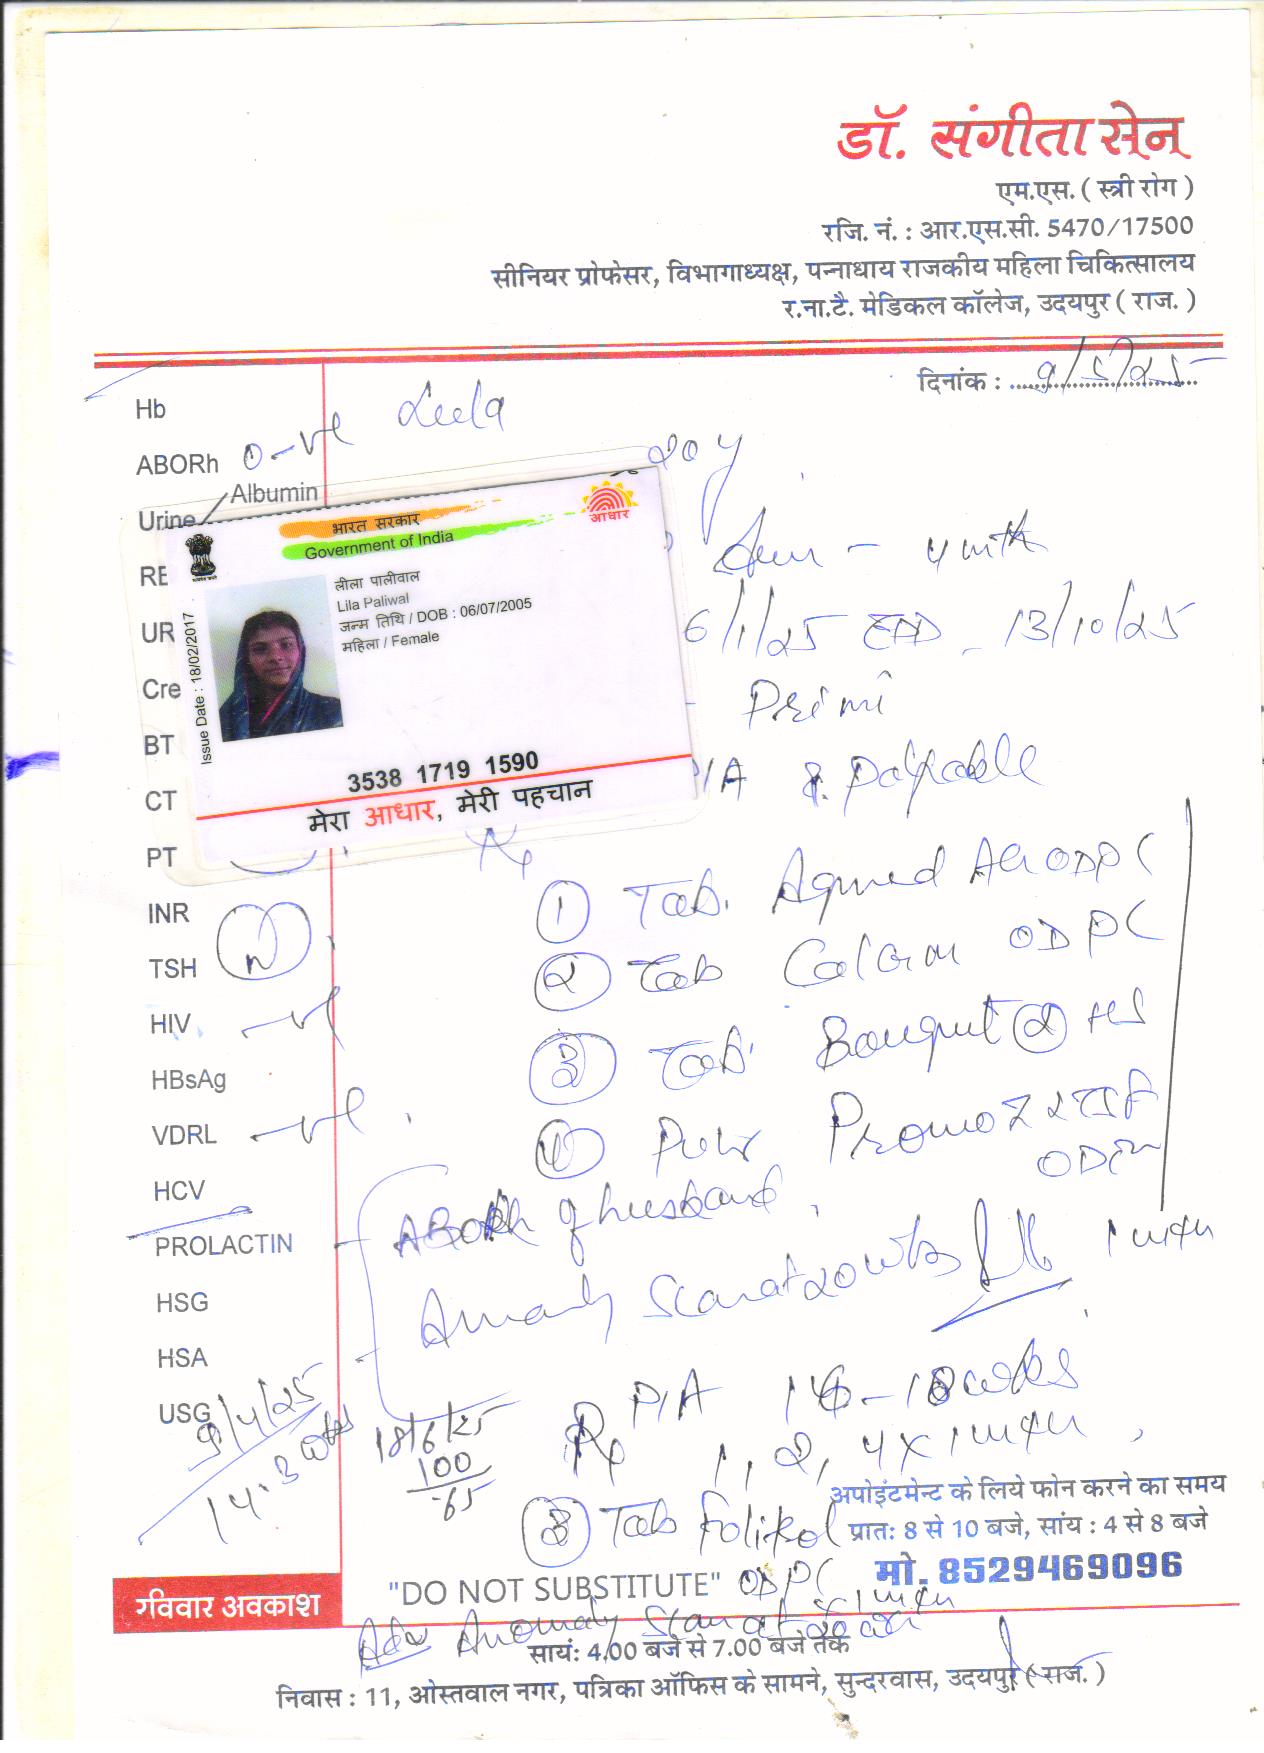 डॉ. संगीता सेन
एम.एस. ( स्त्री रोग )
रजि. नं. : आर.एस.सी. 5470/17500
सीनियर प्रोफेसर, विभागाध्यक्ष, पन्नाधाय राजकीय महिला चिकित्सालय
र.ना.टै. मेडिकल कॉलेज, उदयपुर ( राज. )
दिनांक : 9/5/25
Hb
Leela
ABORh O-ve
20 y
Urine Albumin
भारत सरकार
Government of India
आधार
लीला पालीवाल
Lila Paliwal
जन्म तिथि / DOB : 06/07/2005
महिला / Female
Issue Date : 18/02/2017
3538 1719 1590
मेरा आधार, मेरी पहचान
RE
4 mth
UR
6/1/25 EDD 13/10/25
Cre
Primi
BT
P/A Palpable
CT
PT
Rx
INR
1 Tab. ODPC
TSH n
2 Tab ODPC
HIV -ve
3 Tab. Bouquet 2 HS
HBsAg
VDRL -ve
4 Promoz
OD
HCV
ABORh of husband
PROLACTIN
Anomaly Scan at 20 wks
HSG
HSA
USG
9/4/25
14.3 wks
18/6/25
100
65
P/A 16-18 wks
Rx 1, 2, 4 x
3 Tab Folikol
ODPC
अपोइंटमेन्ट के लिये फोन करने का समय
प्रातः 8 से 10 बजे, सांय : 4 से 8 बजे
मो. 8529469096
रविवार अवकाश
"DO NOT SUBSTITUTE"
Adv Anomaly Scan at
सायं: 4.00 बजे से 7.00 बजे तक
निवास : 11, ओस्तवाल नगर, पत्रिका ऑफिस के सामने, सुन्दरवास, उदयपुर ( राज. )